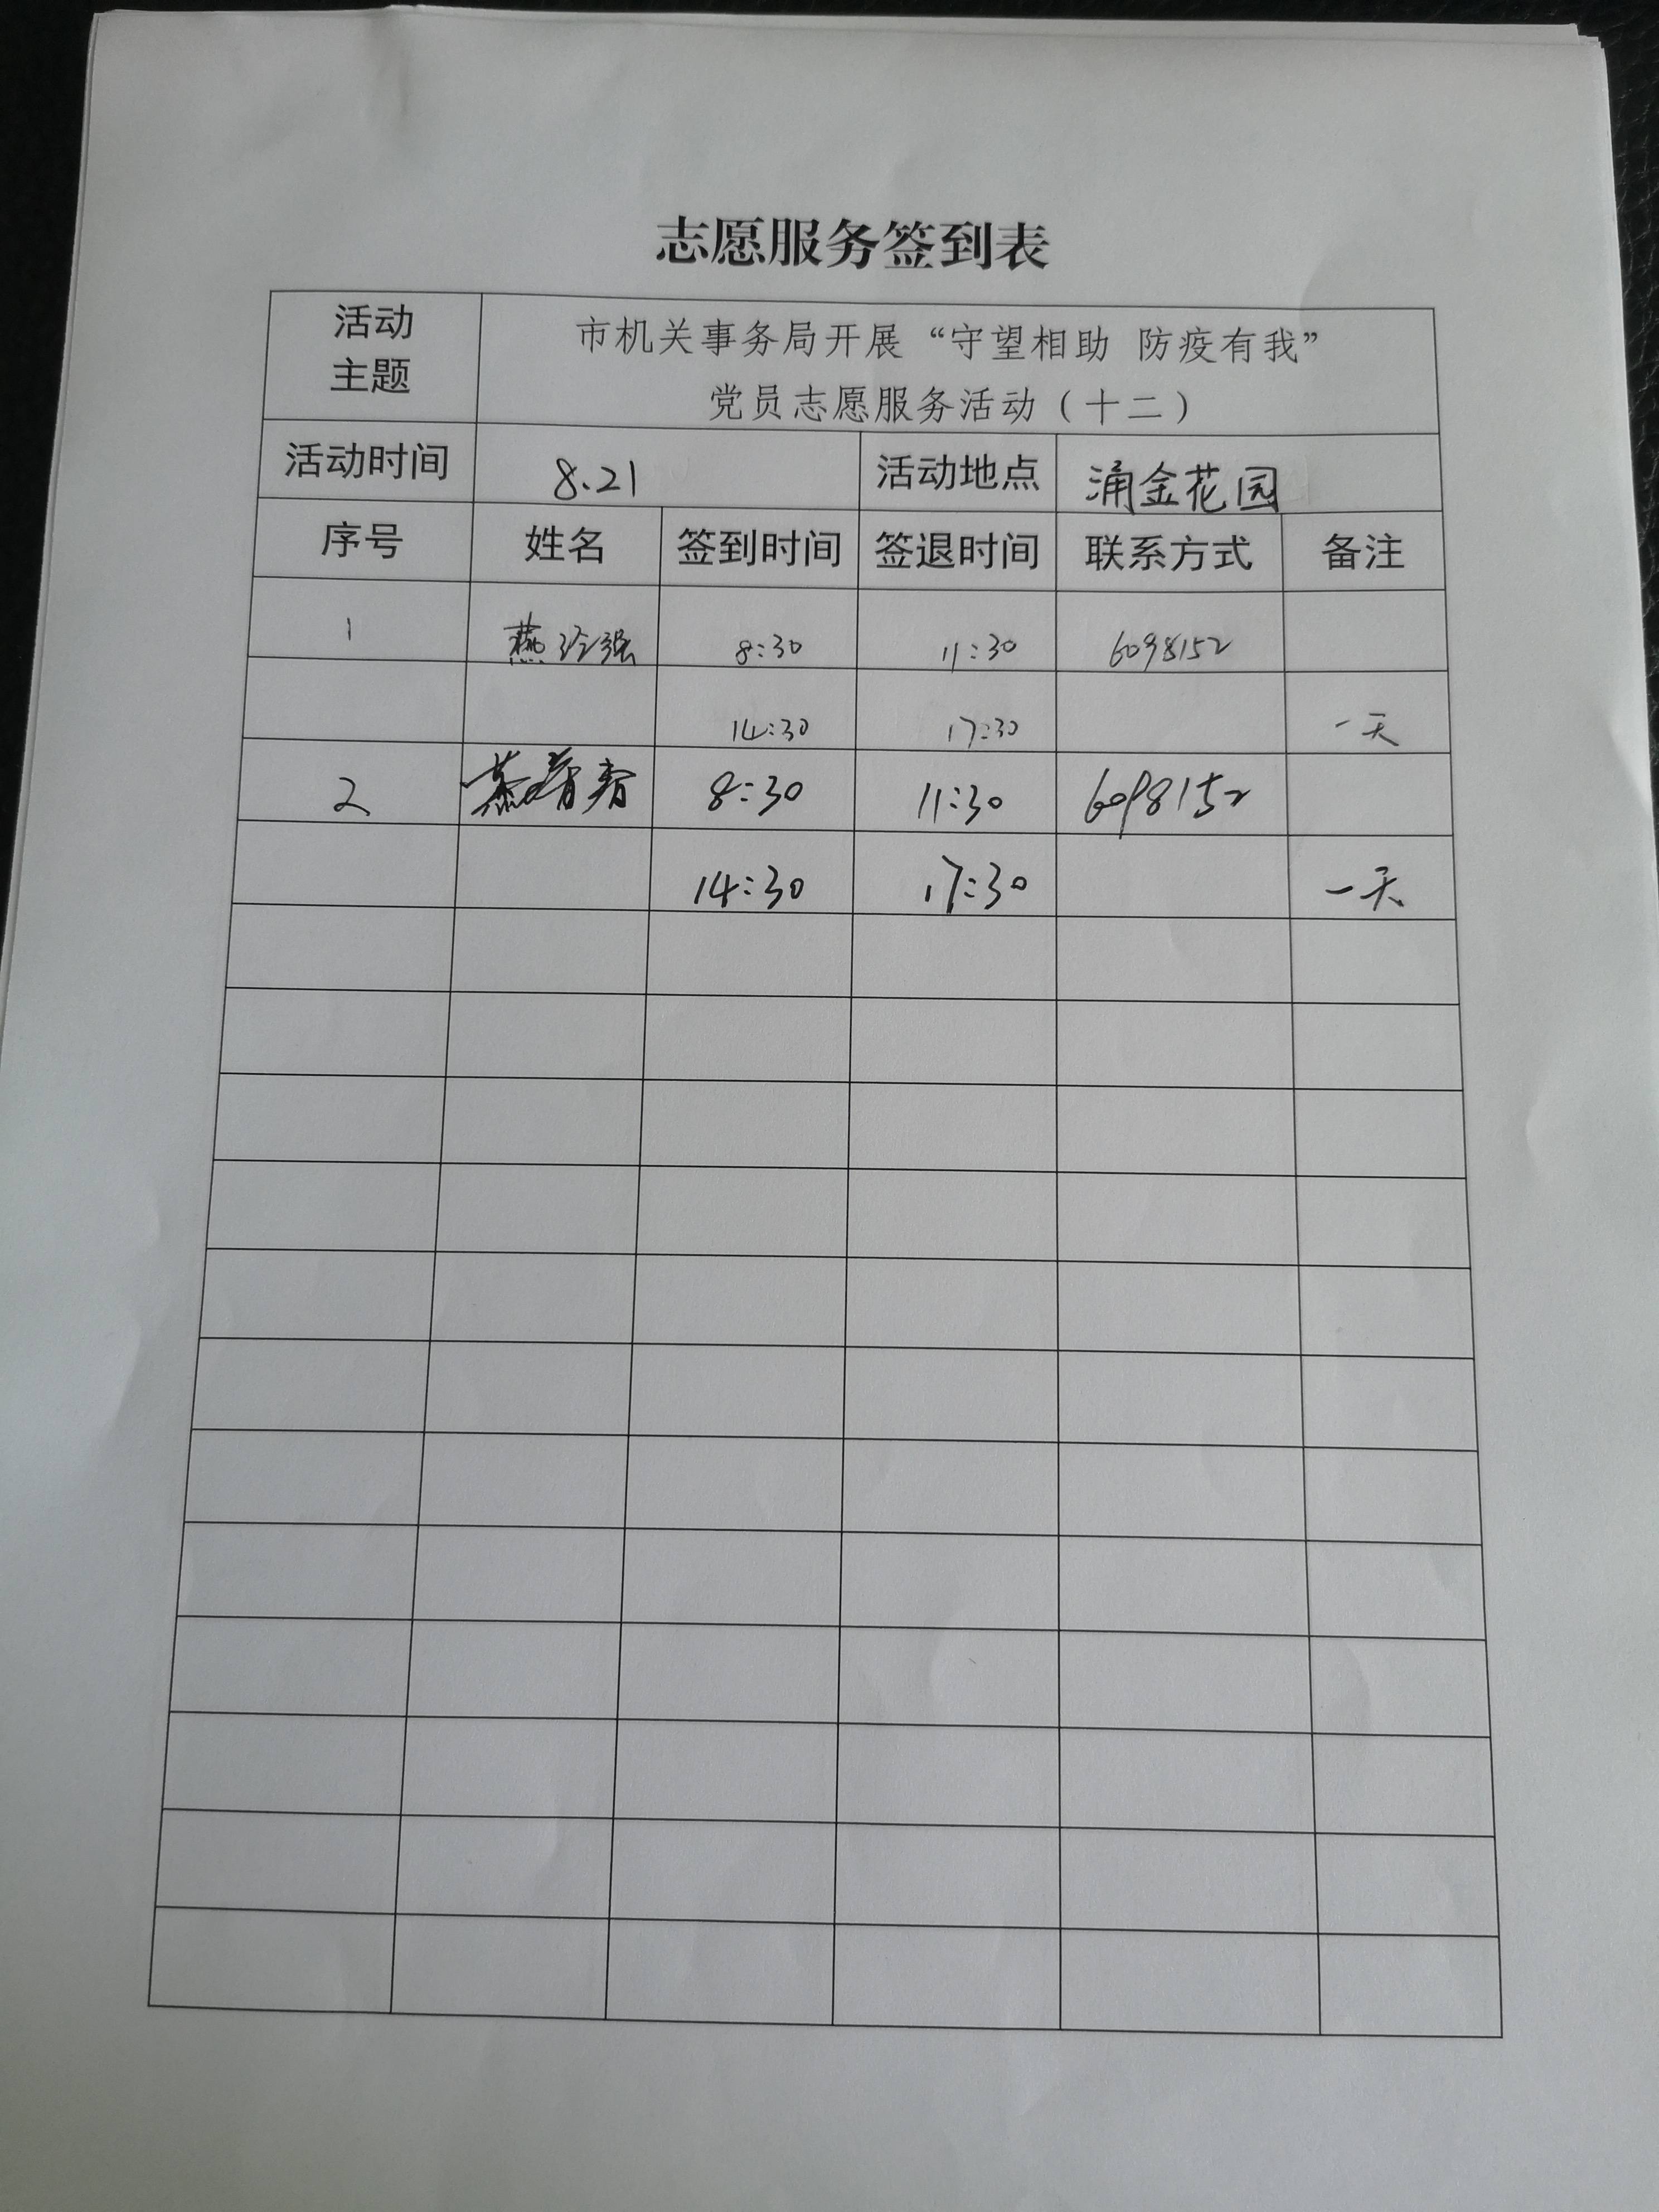 志愿服务签到表
活动
主题
市机关事务局开展“守望相助 防疫有我”
党员志愿服务活动（十二）
活动时间 8.21 活动地点 涌金花园
序号 姓名 签到时间 签退时间 联系方式 备注
1 8:30 11:30 6098152
14:30 17:30 一天
2 8:30 11:30 6098152
14:30 17:30 一天